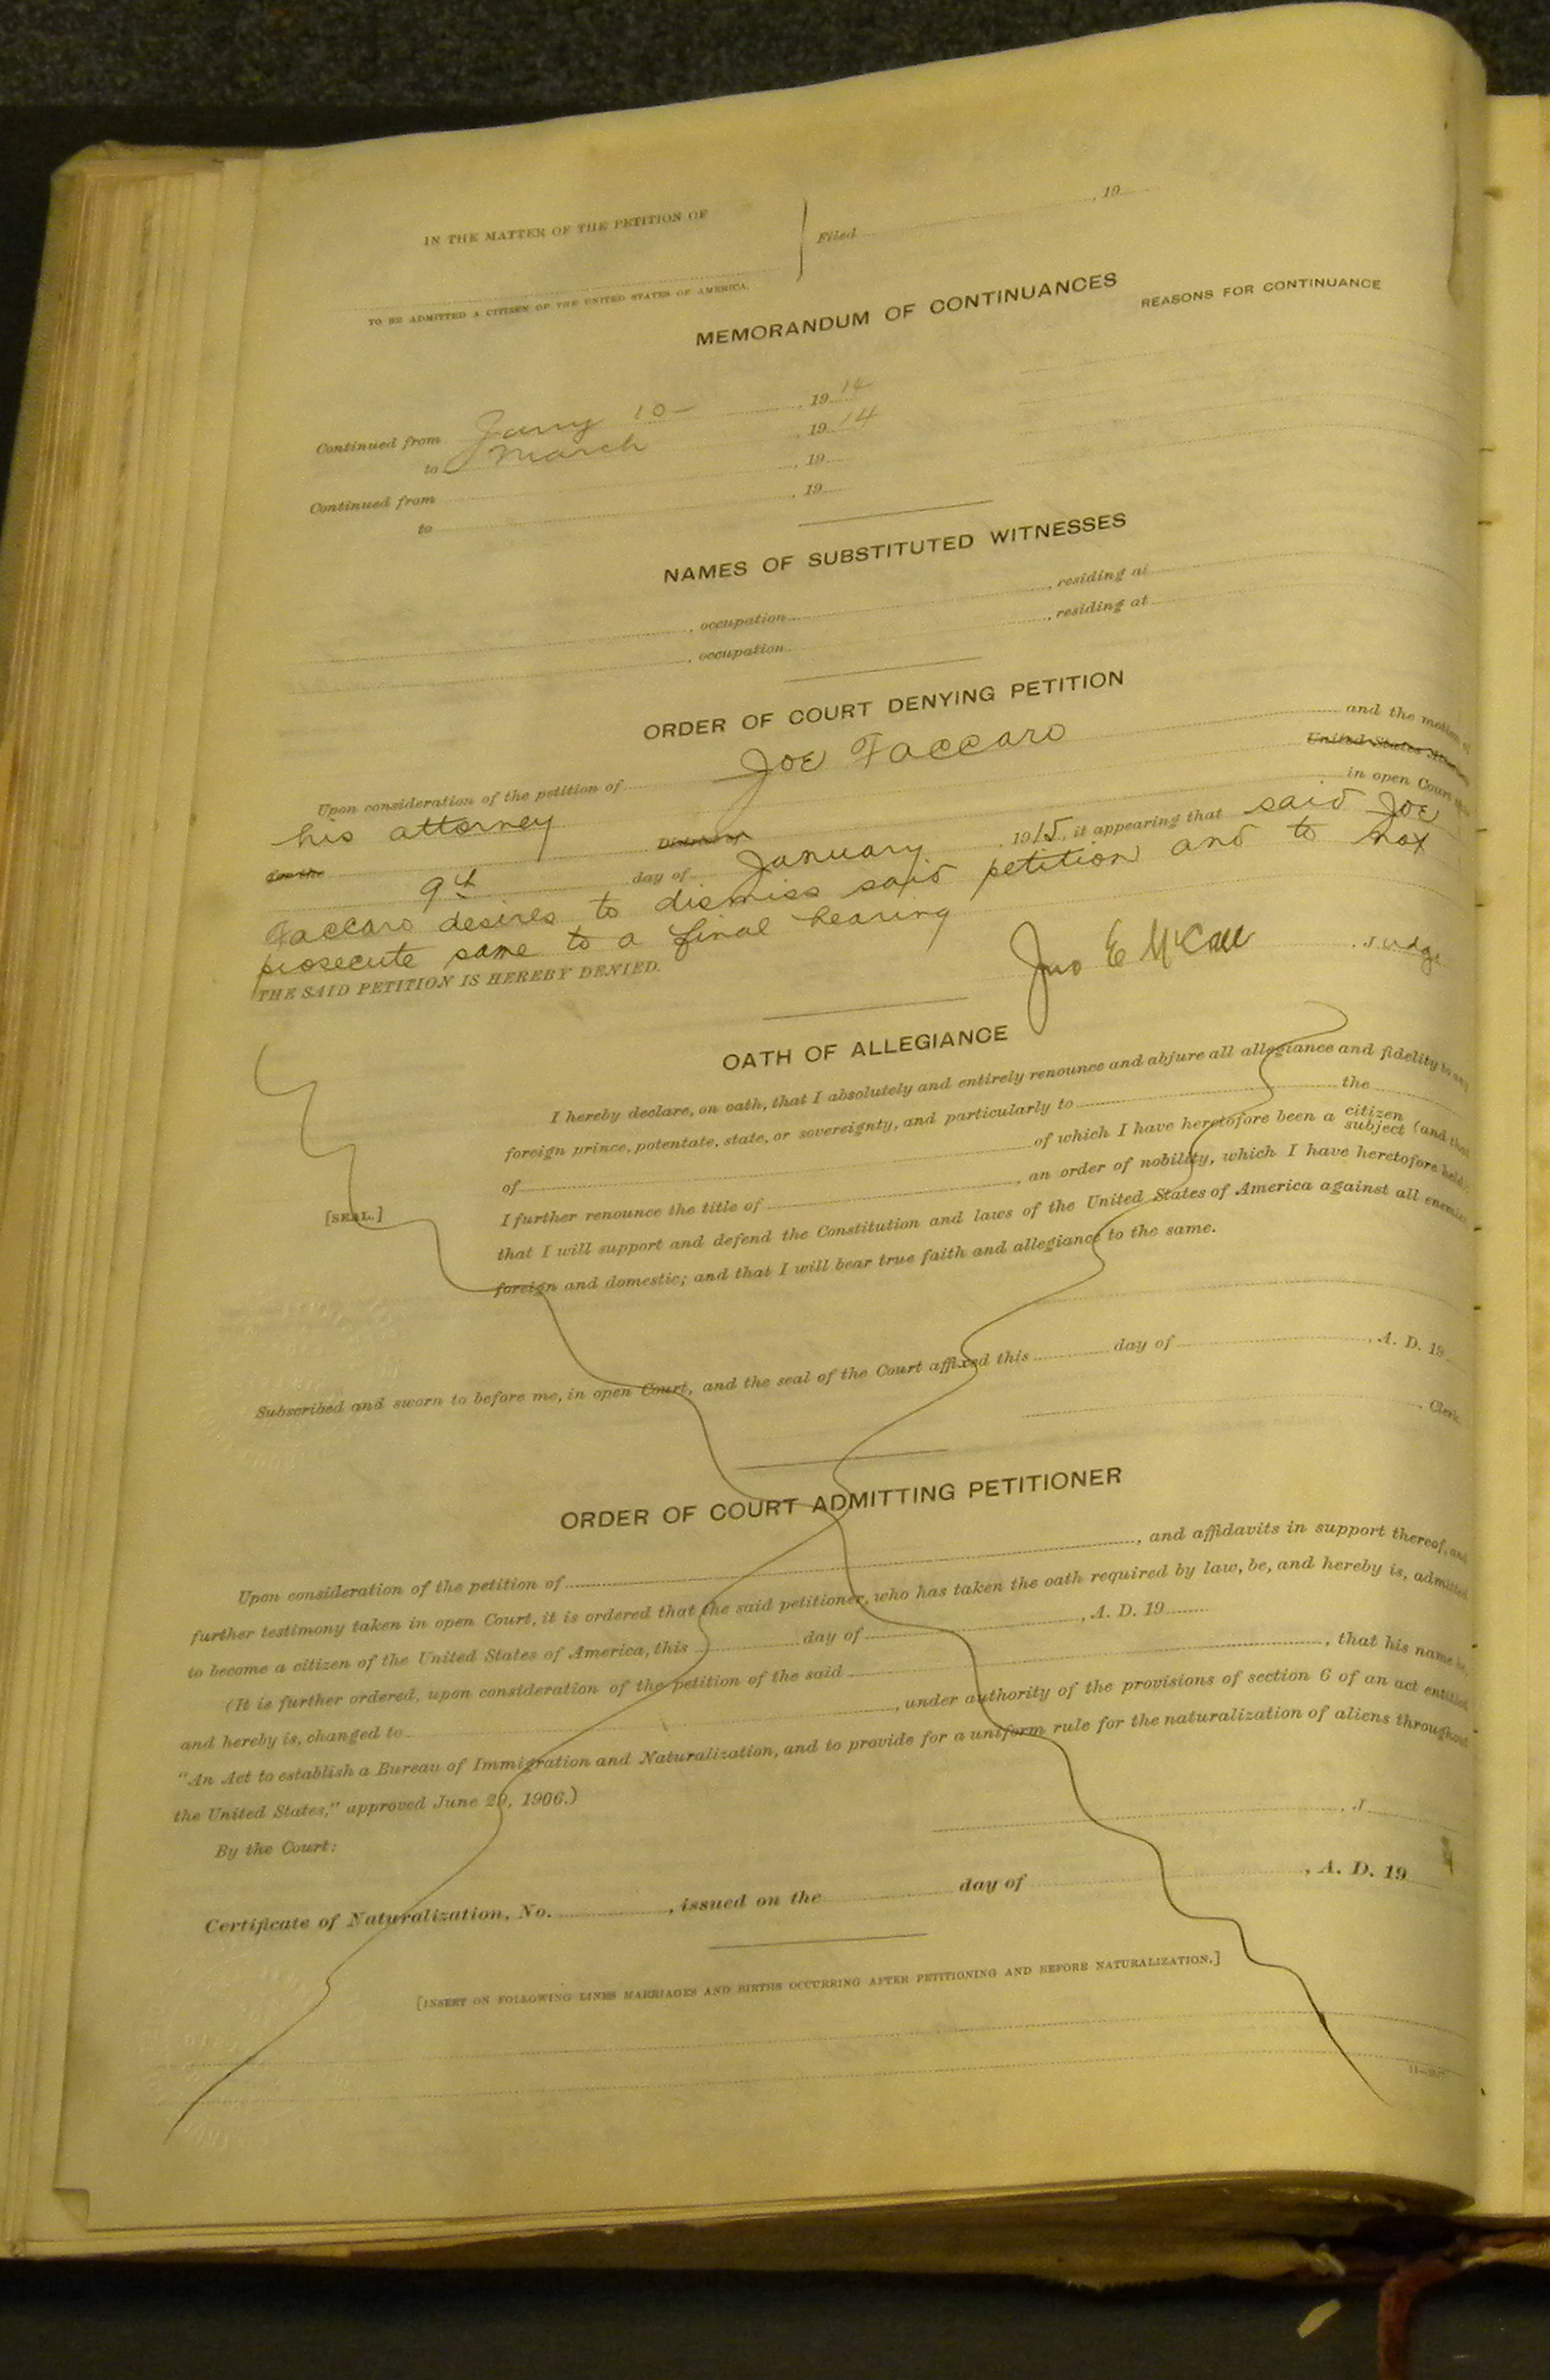 IN THE MATTER OF THE PETITION OF
Filed , 19
TO BE ADMITTED A CITIZEN OF THE UNITED STATES OF AMERICA.
MEMORANDUM OF CONTINUANCES
REASONS FOR CONTINUANCE
Continued from Jany 10- , 1914
to March , 1914
Continued from , 19
to , 19
NAMES OF SUBSTITUTED WITNESSES
, occupation , residing at
, occupation , residing at
ORDER OF COURT DENYING PETITION
Upon consideration of the petition of Joe Faccaro and the motion of
his attorney United States
for the District of in open Court this
9th day of January , 1915, it appearing that said Joe
Faccaro desires to dismiss said petition and to not
prosecute same to a final hearing
THE SAID PETITION IS HEREBY DENIED.
Jno E McCall , Judge
OATH OF ALLEGIANCE
I hereby declare, on oath, that I absolutely and entirely renounce and abjure all allegiance and fidelity to any
foreign prince, potentate, state, or sovereignty, and particularly to the
of of which I have heretofore been a citizen subject (and that
I further renounce the title of , an order of nobility, which I have heretofore held);
that I will support and defend the Constitution and laws of the United States of America against all enemies,
foreign and domestic; and that I will bear true faith and allegiance to the same.
[SEAL.]
Subscribed and sworn to before me, in open Court, and the seal of the Court affixed this day of , A. D. 19
, Clerk.
ORDER OF COURT ADMITTING PETITIONER
Upon consideration of the petition of , and affidavits in support thereof, and
further testimony taken in open Court, it is ordered that the said petitioner, who has taken the oath required by law, be, and hereby is, admitted
to become a citizen of the United States of America, this day of , A. D. 19
(It is further ordered, upon consideration of the petition of the said , that his name be,
and hereby is, changed to , under authority of the provisions of section 6 of an act entitled
"An Act to establish a Bureau of Immigration and Naturalization, and to provide for a uniform rule for the naturalization of aliens throughout
the United States," approved June 29, 1906.)
By the Court:
, J
Certificate of Naturalization, No. , issued on the day of , A. D. 19
[INSERT ON FOLLOWING LINES MARRIAGES AND BIRTHS OCCURRING AFTER PETITIONING AND BEFORE NATURALIZATION.]